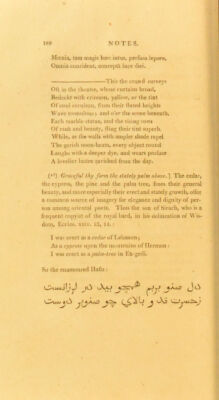 188 NOTES.
Mœnia, tum magis hoc intus, perfusa lepore,
Omnia conrident, conreptâ luce diei.
This the crowd surveys
Oft in the theatre, whose curtains broad,
Bedeckt with crimson, yellow, or the tint
Of steel cerulean, from their fluted heights
Wave tremulous; and o'er the scene beneath,
Each marble statue, and the rising rows
Of rank and beauty, fling their tint superb.
While, as the walls with ampler shade repel
The garish noon-beam, every object round
Laughs with a deeper dye, and wears profuse
A lovelier lustre ravished from the day.
Graceful thy form like stately palm above.] The cedar,
the cypress, the pine and the palm tree, from their general
beauty, and more especially their erect and stately growth, offer
a common source of imagery for elegance and dignity of per-
son among oriental poets. Thus the son of Sirach, who is a
frequent copyist of the royal bard, in his delineation of Wis-
dom, Ecclus. xxiv. 13, 14:
I was erect as a cedar of Lebanon;
As a cypress upon the mountains of Hermon:
I was erect as a palm-tree in En-gedi.
So the enamoured Hafiz:
دل صنوبریم همچو بید در لرزانست
زحسرت قد و بالای چو صنوبر دوست